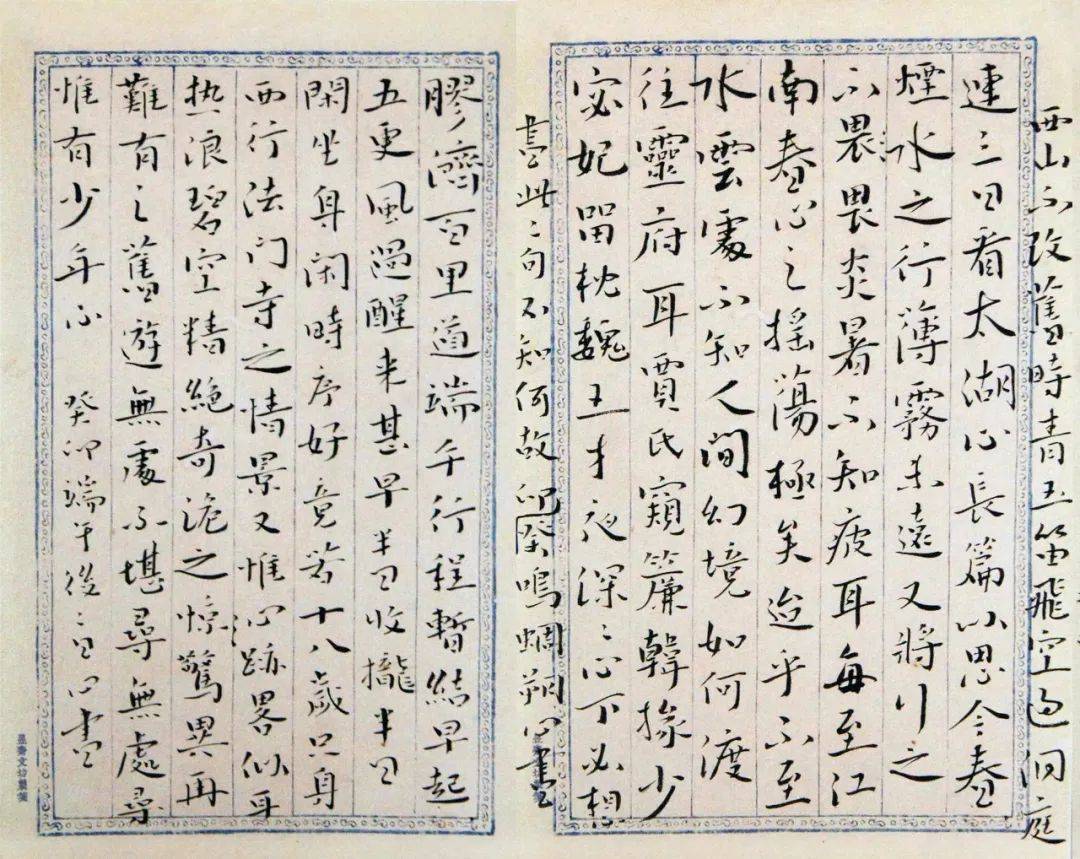 西山不改舊時青玉笛飛空過洞庭
連三日看太湖心長篇以思今春
煙水之行薄霧未遠又將行之
不畏畏炎暑不知疲耳每至江
南春心之搖蕩極矣迨乎不至
水雲處不知人間幻境如何渡
往靈府耳賈氏窺簾韓掾少
宓妃留枕魏王才夜深之心下必想
書此二句不知何故卯癸鳴蜩朔心書
膠濟百里道端午行程暫結早起
五更風過醒來甚早半日收攏半日
閑坐身閑時序好竟若十八歲只身
西行法门寺之情景又惟心跡畧似耳
热浪碧空精絕奇詭之惊驚異再
難有之舊遊無處不堪尋無處尋
惟有少年心 癸卯端午後二日心書